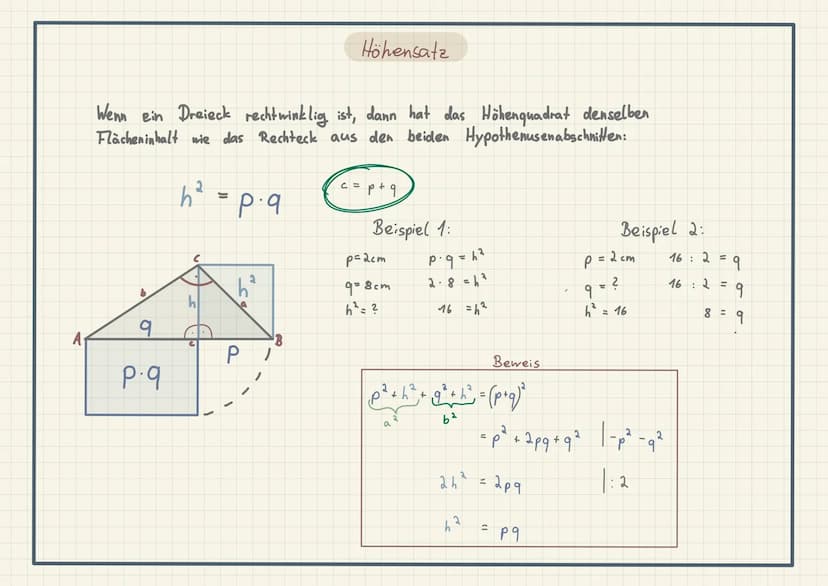 Höhensatz
Wenn ein Dreieck rechtwinklig ist, dann hat das Höhenquadrat denselben
Flächeninhalt wie das Rechteck aus den beiden Hypothenusenabschnitten:
h² = p·q
c = p+q
Beispiel 1:
p=2cm p·q = h²
q=8cm 2·8 = h²
h²=? 16 = h²
Beispiel 2:
p = 2cm 16 : 2 = q
q = ? 16 : 2 = q
h² = 16 8 = q
C
b
h²
h
a
q
A
c
B
p
p·q
Beweis
p²+h²+q²+h² = (p+q)²
a² b²
= p²+2pq+q² |-p²-q²
2h² = 2pq |:2
h² = pq